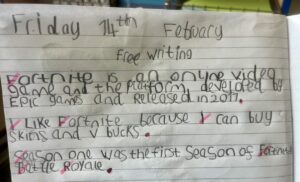 Friday 14th Febuary
Free writing
Fortnite is an onlyne video
game and the platform, develated by
EPIC games and Released in 2017.
I Like Fortnite because I can buy
skins and v bucks.
Season one was the first Season of Fortnite
Battle Royale.